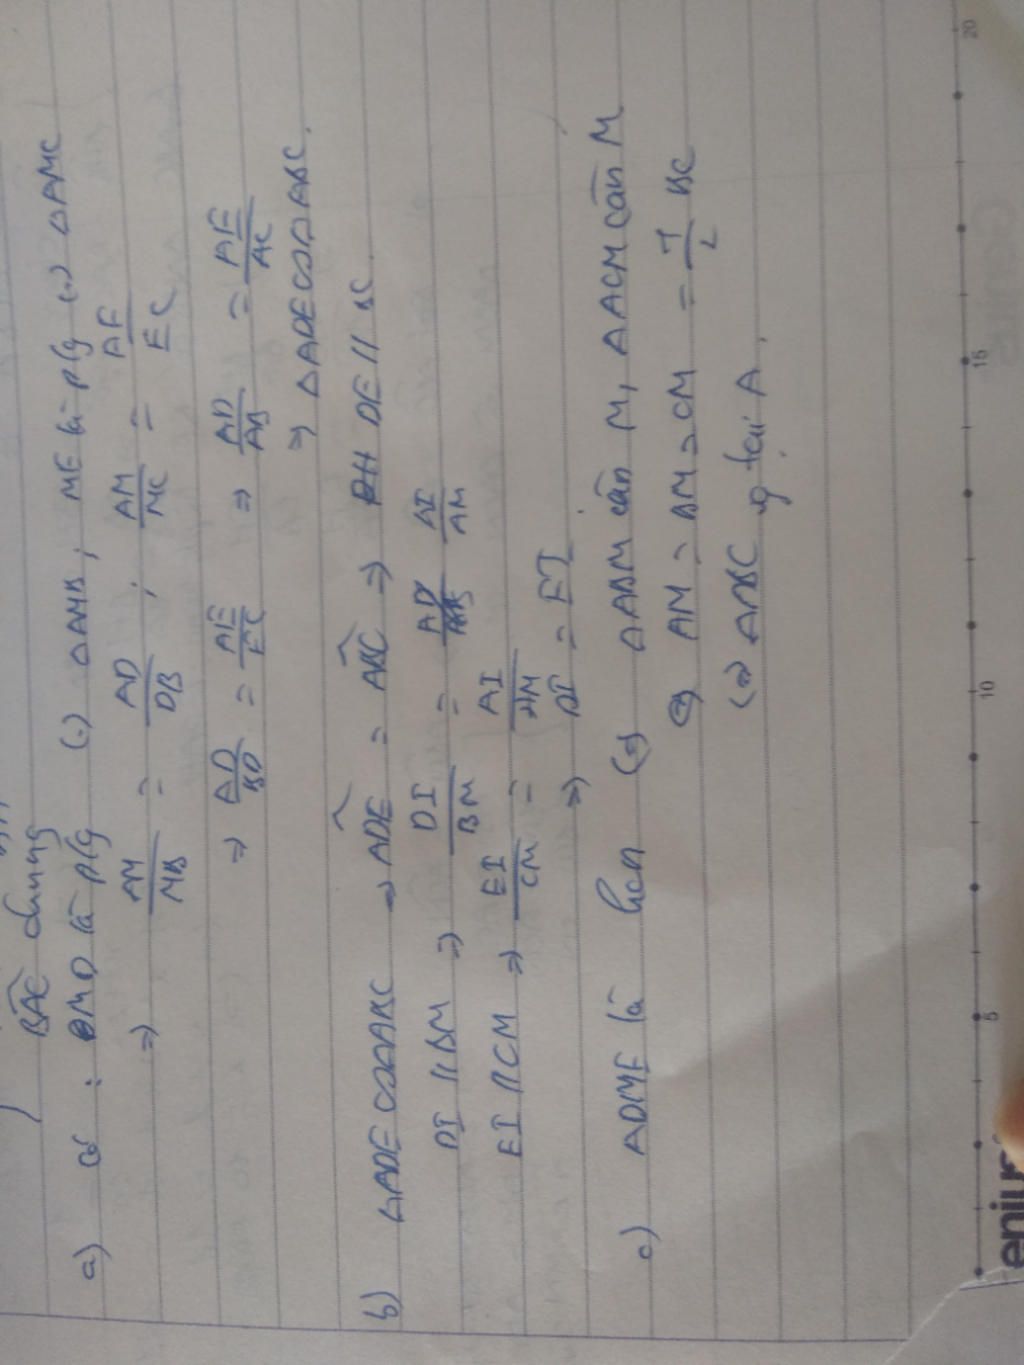 BAC chung
a) có : MD là plg (.) ΔAMB ; ME là plg (.) ΔAMC
⇒ AM/MB = AD/DB ; AM/MC = AE/EC
⇒ AD/BD = AE/EC ⇒ AD/AB = AE/AC
⇒ ΔADE ∽ ΔABC.
b) ΔADE ∽ ΔABC → ADE = ABC ⇒ DE // BC.
DI // BM ⇒ DI/BM = AD/AB AI/AM
EI // CM ⇒ EI/CM = AI/AM
⇒ DI = EI
c) ADME là hcn (⇒ ΔABM cân M, ΔACM cân M
⇔ AM = BM = CM = 1/2 BC
⇔ ΔABC vg tại A.
5 10 15 20
enius